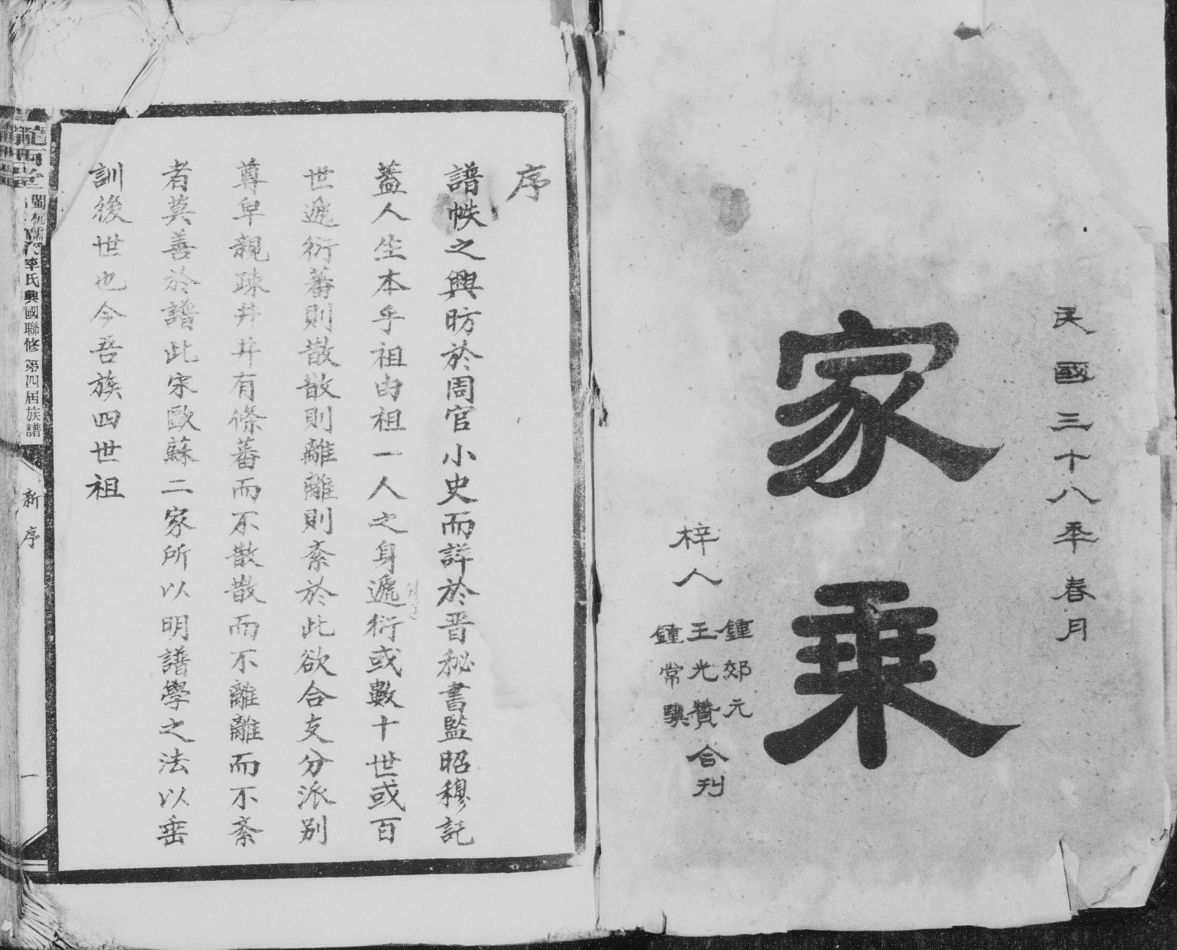 民國三十八年春月
家乘
梓人
鍾郊元
王光贊
鍾常驥
合刊
序
譜帙之興昉於周官小史而詳於晋秘書監昭穆誌
蓋人生本乎祖由祖一人之身遞衍或數十世或百
世遞衍蕃則散散則離離則紊於此欲合支分派别
尊卑親疎井井有條蕃而不散散而不離離而不紊
者莫善於譜此宋歐蘇二家所以明譜學之法以垂
訓後世也今吾族四世祖
隴西堂
李氏興國聯修 第四屆族譜
新序
一